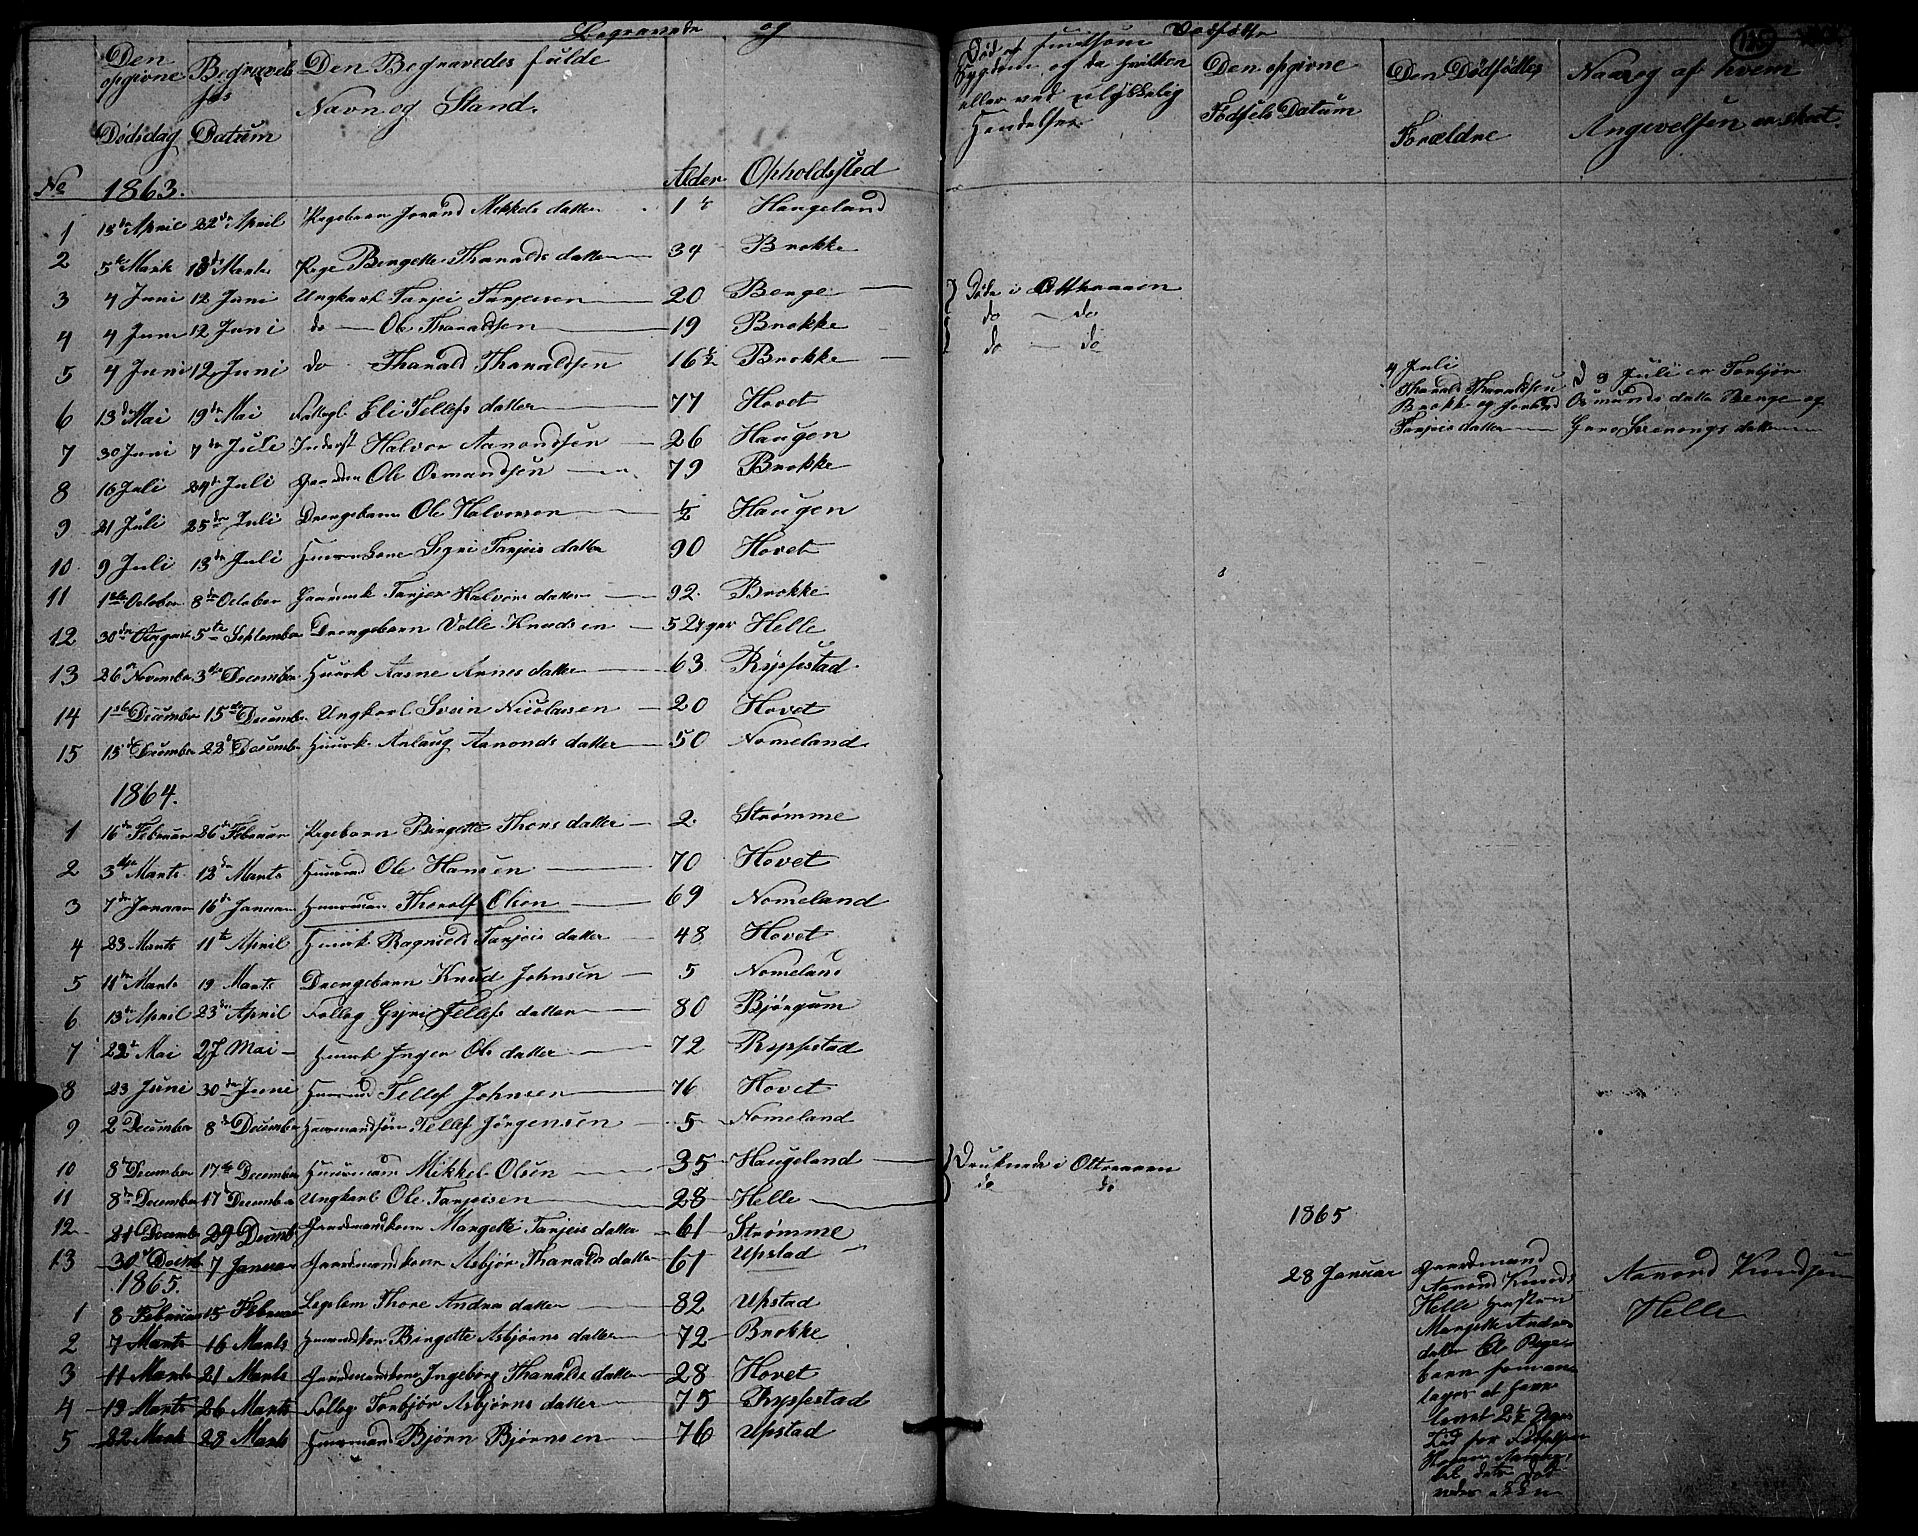 Begravede og Dødfødte
125
Den opgivne Dødsdag
Begravelses Datum
Den Begravedes fulde Navn og Stand.
Alder
Opholdssted
Død af
Sygdom og da hvilken
eller ved ulykkelig
Hendelse
Den opgivne
Fødsels Datum
Den Dødfødtes
Forældre
Naar og af hvem
Angivelsen er skeet.
No 1863.
1 15de April 22de April Pigebarn Jorand Mikkels datter 1 Haugeland
2 5te Marts 18de Marts Pige Bergette Tharalds datter 34 Brokke
3 4 Juni 12 Juni Ungkarl Tarjei Tarjeisen 20 Benge Døde i Otteraaen
4 4 Juni 12 Juni do Ole Tharaldsen 19 Brokke do do
5 4 Juni 12 Juni do Tharald Tharaldsen 16½ Brokke do do
6 13de Mai 19de Mai Fattigl Eli Tellefs datter 77 Hovet
7 30 Juni 7de Juli Inderst Halvor Aamondsen 26 Haugen
8 16 Juli 24de Juli Ole Osmundsen 79 Brokke
9 21 Juli 25de Juli Drengebarn Ole Halvorsen ½ Haugen
10 9 Juli 13de Juli Sigri Tarjeis datter 90 Hovet
11 1ste October 8de October Tarjer Halvors datter 92 Brokke
12 30de August 5te September Drengebarn Volle Knudsen 5 Uger Helle
13 26de November 3die December Huusk Aasne Annes datter 63 Rypestad
14 1ste December 15de December Ungkarl Svein Nicolaisen 20 Hovet
15 15de December 22de December Huusk Anlaug Aamonds datter 50 Nomeland
4 Juli
Tharald Tharaldsen
Brokke og Jorand
Tarjeis datter
d 9 Juli er Torbjør
Osmunds datter Benge og
Guro Grennings datter
1864.
1 16de Februar 26de Februar Pigebarn Birgette Thors datter 2 Strømme
2 3die Marts 12de Marts Huusmd Ole Hansen 70 Hovet
3 7de Januar 16de Januar Huusmand Tharalf Olsen 69 Nomeland
4 23 Marts 11te April Huusk Ragnild Tarjeis datter 48 Hovet
5 11te Marts 19 Marts Drengebarn Knud Johnsen 5 Nomeland
6 13de April 23de April Fattig Gyri Tellefs datter 80 Bjørgum
7 22de Mai 27 Mai Huusk Inger Ols datter 72 Rypestad
8 23 Juni 30de June Huusmd Tellef Johnsen 76 Hovet
9 2 December 8de December Huusmandsøn Tellef Jørgensen 5 Nomeland
10 8de December 17de December Huusmand Mikkel Olsen 35 Haugeland Druknede i Otteraaen
11 8de December 17de December Ungkarl Ole Tarjeisen 28 Helle do do
12 21 December 29 Decemb Gaardmandkone Margette Tarjeis datter 61 Strømme
13 30te Decemb 7 Januar Gaardmandkone Asbjør Tharalds datter 61 Upstad
1865.
1 8 Februar 15 Februar Leglem Thore Andres datter 82 Upstad
2 7 Marts 16 Marts Huusmandkone Birgette Asbjørns datter 72 Brokke
3 11 Marts 21 Marts Gaardmandkone Ingeborg Tharalds datter 28 Hovet
4 19 Marts 26 Marts Fattig Torbjør Asbjørns datter 75 Rypestad
5 22 Marts 28 Marts Huusmand Bjørn Bjørnsen 76 Upstad
1865
28 Januar
Gaardmand
Aanond Knuds
Helle Hustru
Margitte Andres
datter Et Pige
barn som an
tages at have
levet 2½ Uger
Tid før Fødselen
Aanond Knudsen
Helle